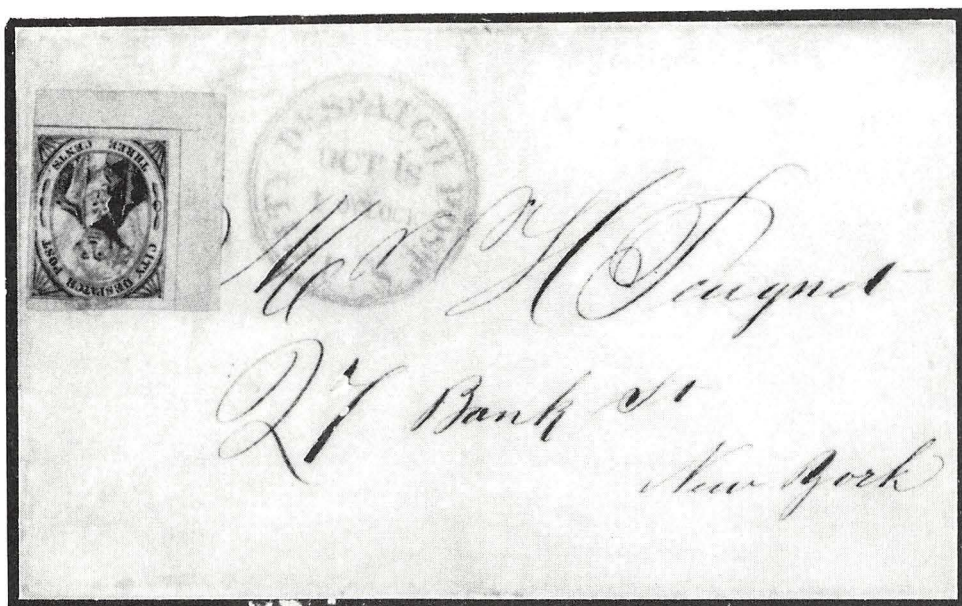 CITY DESPATCH POST
THREE CENTS
CITY DESPATCH POST
OCT 18
O'CLOCK
Mr H Pougnet
27 Bank St
New York